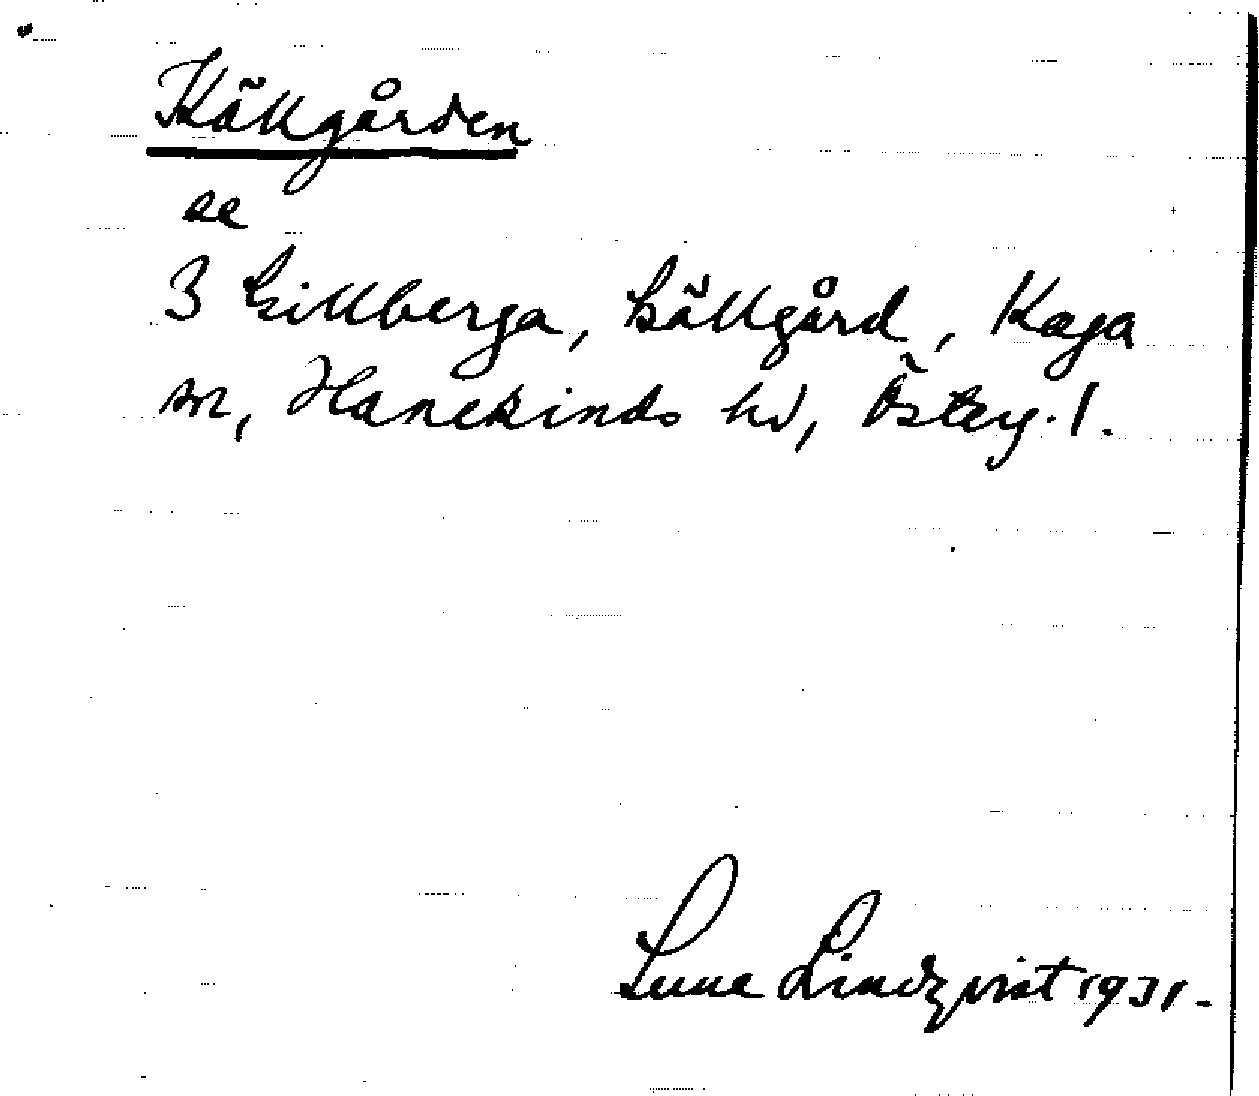 Källgården
se
3 Gillberga, Källgård, Kaga
sn, Hanekinds hd, Österg. l.
Sune Lindqvist 1931.